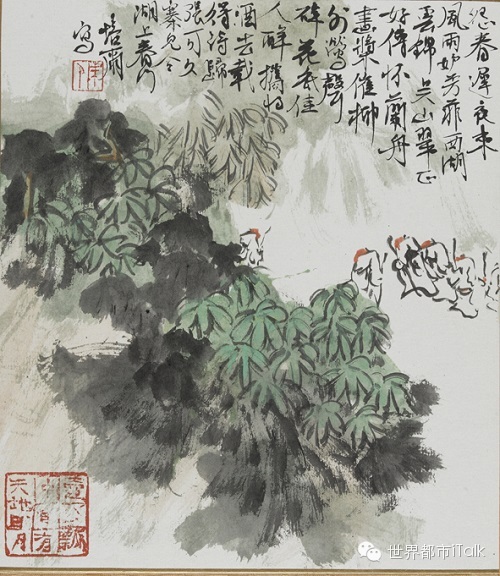 怨春遲夜來
風雨妒芳菲西湖
雲錦吳山翠正
好傳杯蘭舟
畫槳催柳
外鶯聲
碎花底佳
人醉攜將
酒去載
得詩歸
張可久
湖上春行
寫
世界都市iTalk